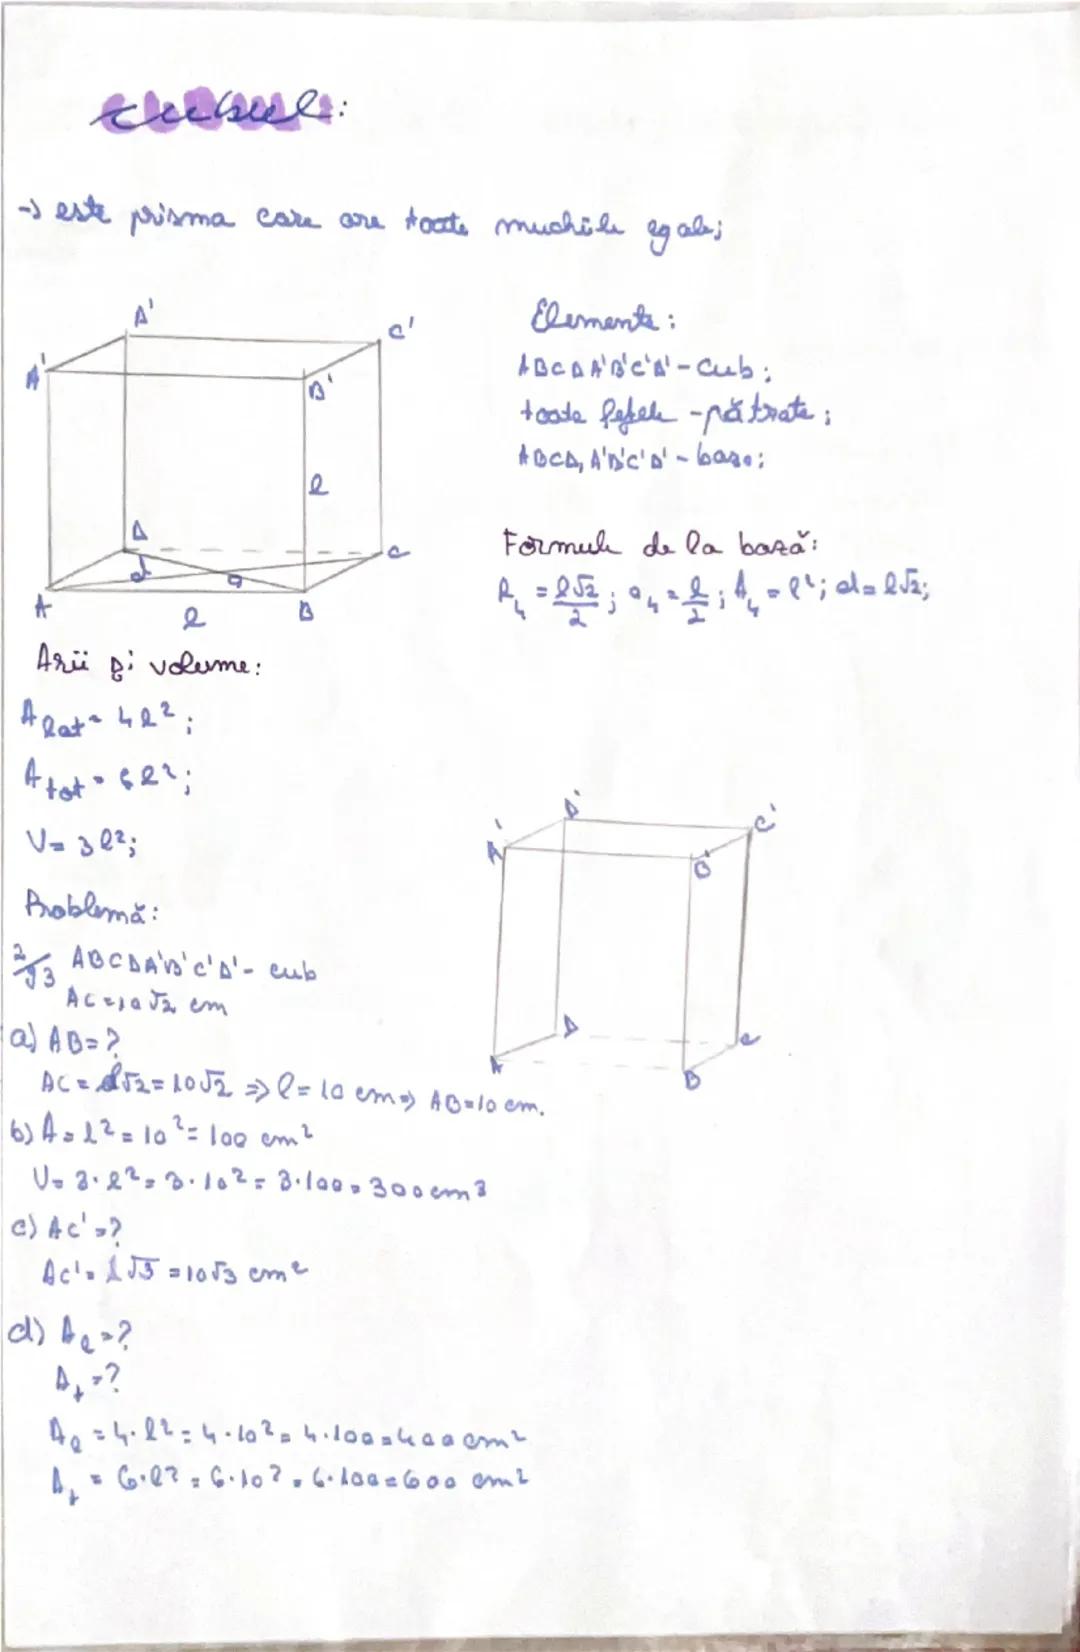 cubul:
→ este prisma care are toate muchiile egale;
D'
C'
A'
B'
l
D
C
d
a
A
l
B
Elemente:
ABCDA'B'C'D' - cub;
toate fețele - pătrate;
ABCD, A'B'C'D' - baze;
Formule de la bază:
R₄ = l√2/2; a₄ = l/2; A₄ = l²; d = l√2;
Arii și volume:
A lat = 4l²;
A tot = 6l²;
V = 3l²;
D'
C'
A'
B'
D
C
A
B
Problemă:
2/93 ABCDA'B'C'D' - cub
AC = 10√2 cm
a) AB = ?
AC = l√2 = 10√2 ⇒ l = 10 cm ⇒ AB = 10 cm.
b) A = l² = 10² = 100 cm²
V = 3·l² = 3·10² = 3·100 = 300 cm³
c) AC' = ?
AC' = l√3 = 10√3 cm²
d) A_l = ?
A_t = ?
A_l = 4·l² = 4·10² = 4·100 = 400 cm²
A_t = 6·l² = 6·10² = 6·100 = 600 cm²